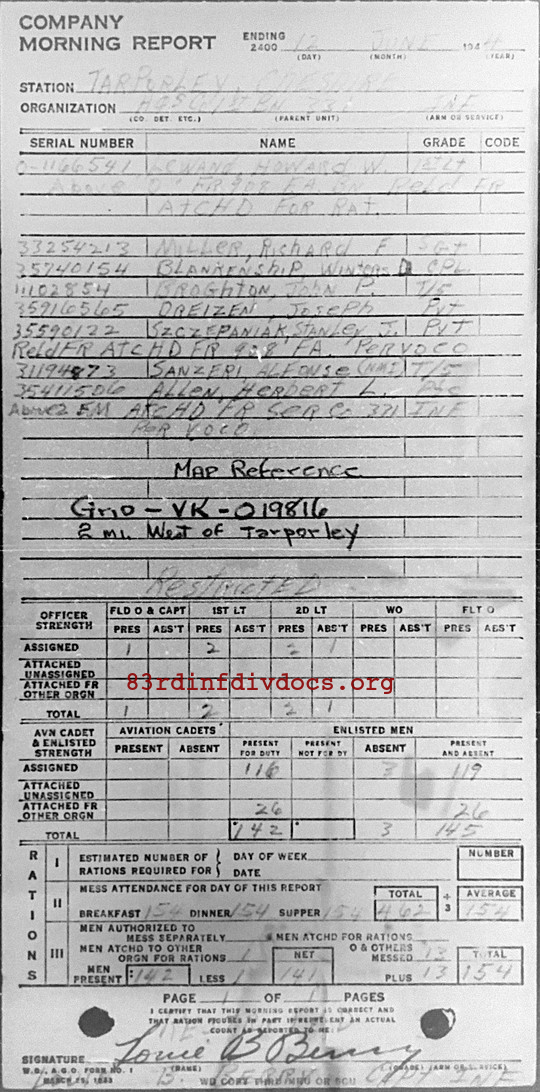 COMPANY
MORNING REPORT ENDING 2400 12 JUNE 1944
(DAY) (MONTH) (YEAR)
STATION TARPORLEY, CHESHIRE
ORGANIZATION INF
(CO. DET. ETC.) (PARENT UNIT) (ARM OR SERVICE)
SERIAL NUMBER NAME GRADE CODE
O-1166541 LEWAND HOWARD W. 1st Lt
Above "O" FR 908 FA BN Reld FR
AtCHD FOR RAT.
33254213 MILLER, Richard F Sgt
35740154 BLANKENSHIP, WINTERS D CPL
11102854 BROGHTON, John P. T/5
35916565 DREIZEN, Joseph Pvt
35590122 SZCZEPANIAK, STANLEY J. Pvt
Reld FR AtCHD FR 908 FA. PER VOCO
31194873 SANZERI, ALFONSE (NMI) T/5
35411506 ALLEN, Herbert L. Pfc
Above 2 EM AtCHD FR Ser Co 331 INF
PER VOCO.
MAP Reference
Grid - VK - 019816
2 mi. West of Tarporley
Restricted
OFFICER STRENGTH FLD O & CAPT 1ST LT 2D LT WO FLT O
PRES ABS'T PRES ABS'T PRES ABS'T PRES ABS'T PRES ABS'T
ASSIGNED 1 2 2 1
ATTACHED UNASSIGNED
ATTACHED FR OTHER ORGN
83rdinfdivdocs.org
TOTAL 1 2 2 1
AVN CADET & ENLISTED STRENGTH AVIATION CADETS ENLISTED MEN
PRESENT ABSENT PRESENT FOR DUTY PRESENT NOT FOR DY ABSENT PRESENT AND ABSENT
ASSIGNED 116 3 119
ATTACHED UNASSIGNED
ATTACHED FR OTHER ORGN 26 26
TOTAL 142 3 145
RATIONS
I ESTIMATED NUMBER OF RATIONS REQUIRED FOR { DAY OF WEEK NUMBER
DATE
II MESS ATTENDANCE FOR DAY OF THIS REPORT TOTAL ÷ 3 AVERAGE
BREAKFAST 154 DINNER 154 SUPPER 154 462 154
III MEN AUTHORIZED TO MESS SEPARATELY MEN ATCHD FOR RATIONS
MEN ATCHD TO OTHER ORGN FOR RATIONS 1 NET O & OTHERS MESSED 13 TOTAL
MEN PRESENT 142 LESS 1 141 PLUS 13 154
PAGE 1 OF 1 PAGES
I CERTIFY THAT THIS MORNING REPORT IS CORRECT AND
THAT RATION FIGURES IN PART II REPRESENT AN ACTUAL
COUNT AS REPORTED TO ME:
SIGNATURE Louie B Berry
W.D., A.G.O. FORM NO. 1 (NAME) (GRADE) (ARM OR SERVICE)
MARCH 15, 1943 B. BERRY CAPT INF